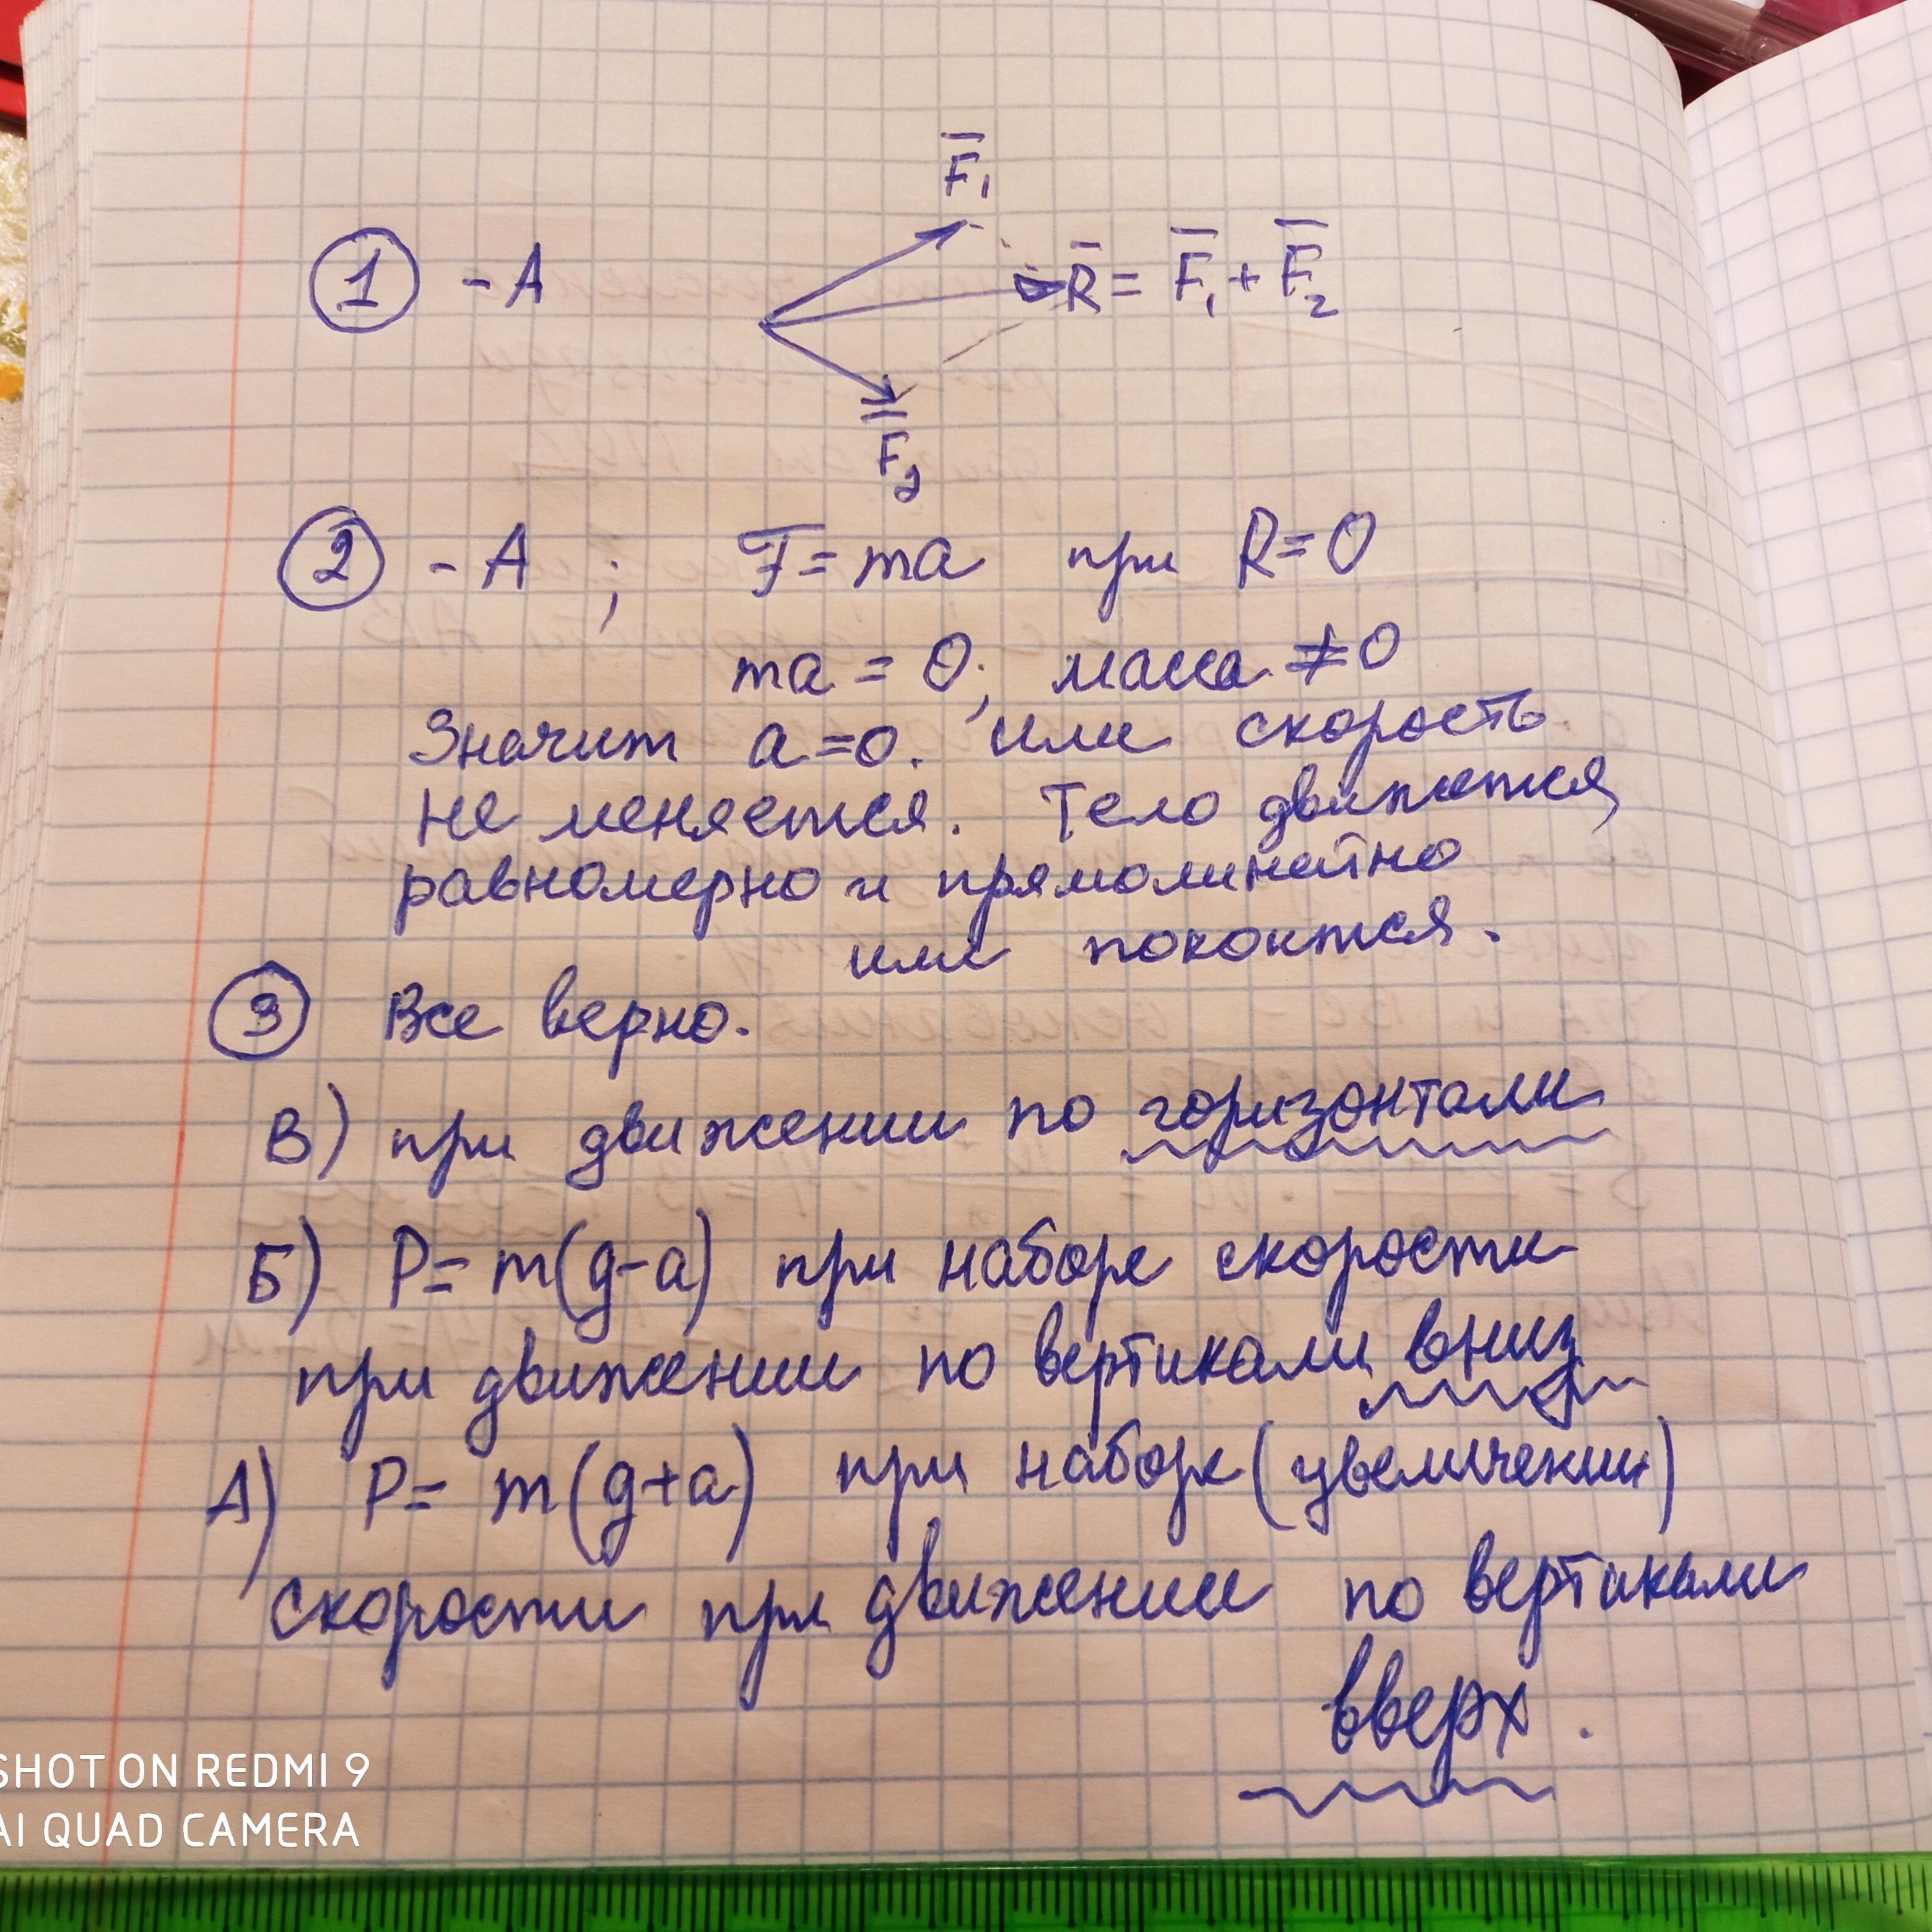 F̅₁
① - А
R̅ = F̅₁ + F̅₂
F̅₂
② - А ; F̅ = ma при R=0
ma = 0; масса ≠0
Значит a=0. или скорость
не меняется. Тело движется
равномерно и прямолинейно
или покоится.
③ Все верно.
В) при движении по горизонтали
Б) P= m(g-a) при наборе скорости
при движении по вертикали вниз
А) P= m(g+a) при наборе (увеличении)
скорости при движении по вертикали
вверх.
SHOT ON REDMI 9
AI QUAD CAMERA